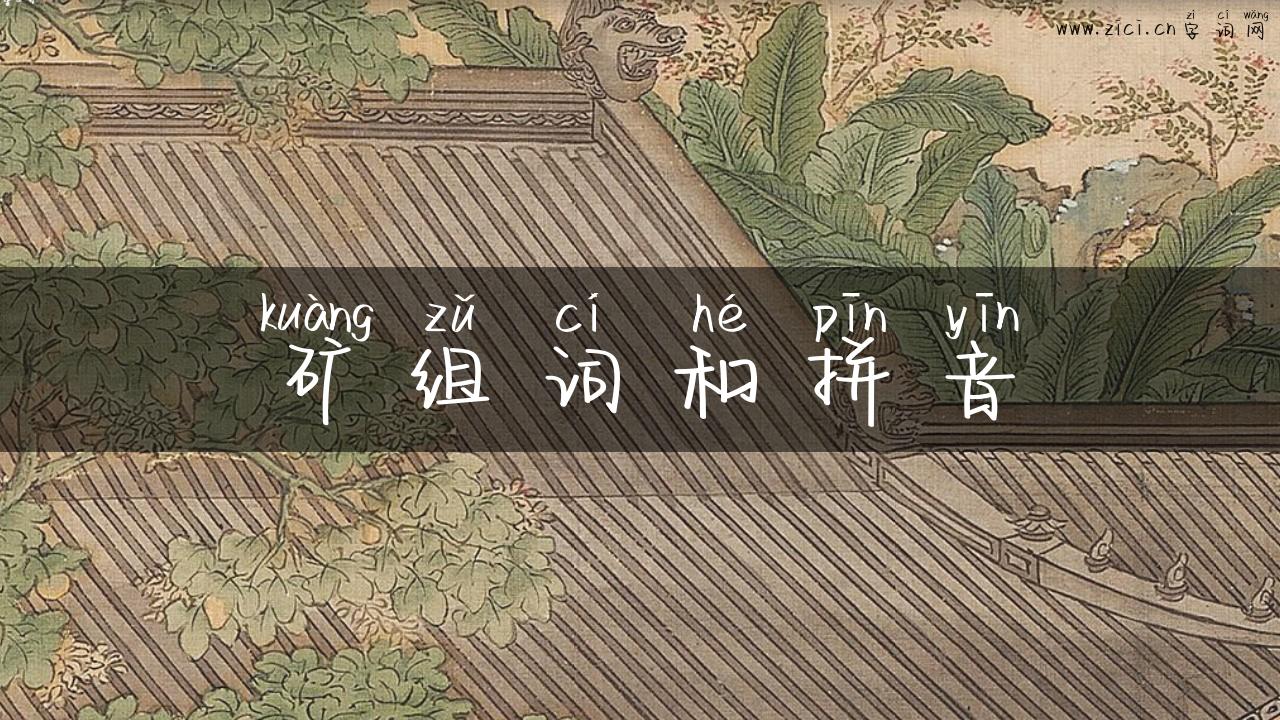 zì cí wǎng
www.zici.cn 字 词 网
kuàng zǔ cí hé pīn yīn
矿 组 词 和 拼 音